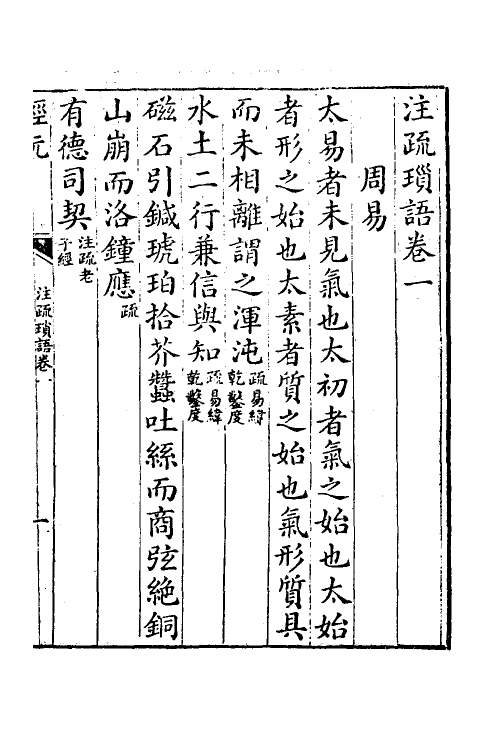 注疏瑣語卷一
周易
太易者未見氣也太初者氣之始也太始
者形之始也太素者質之始也氣形質具
而未相離謂之渾沌疏易緯乾鑿度
水土二行兼信與知疏易緯乾鑿度
磁石引鍼琥珀拾芥蠶吐絲而商弦絶銅
山崩而洛鐘應疏
有德司契注疏老子經
經元
注疏瑣語卷一
一